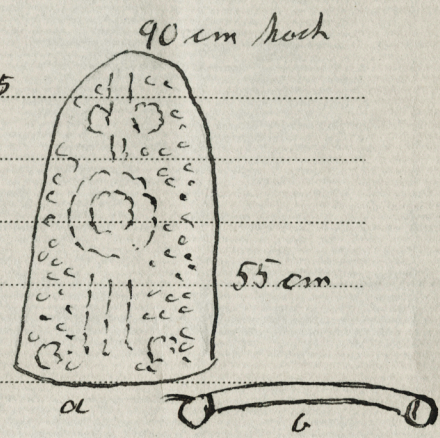 90 cm hoch
5
55 cm
a
b